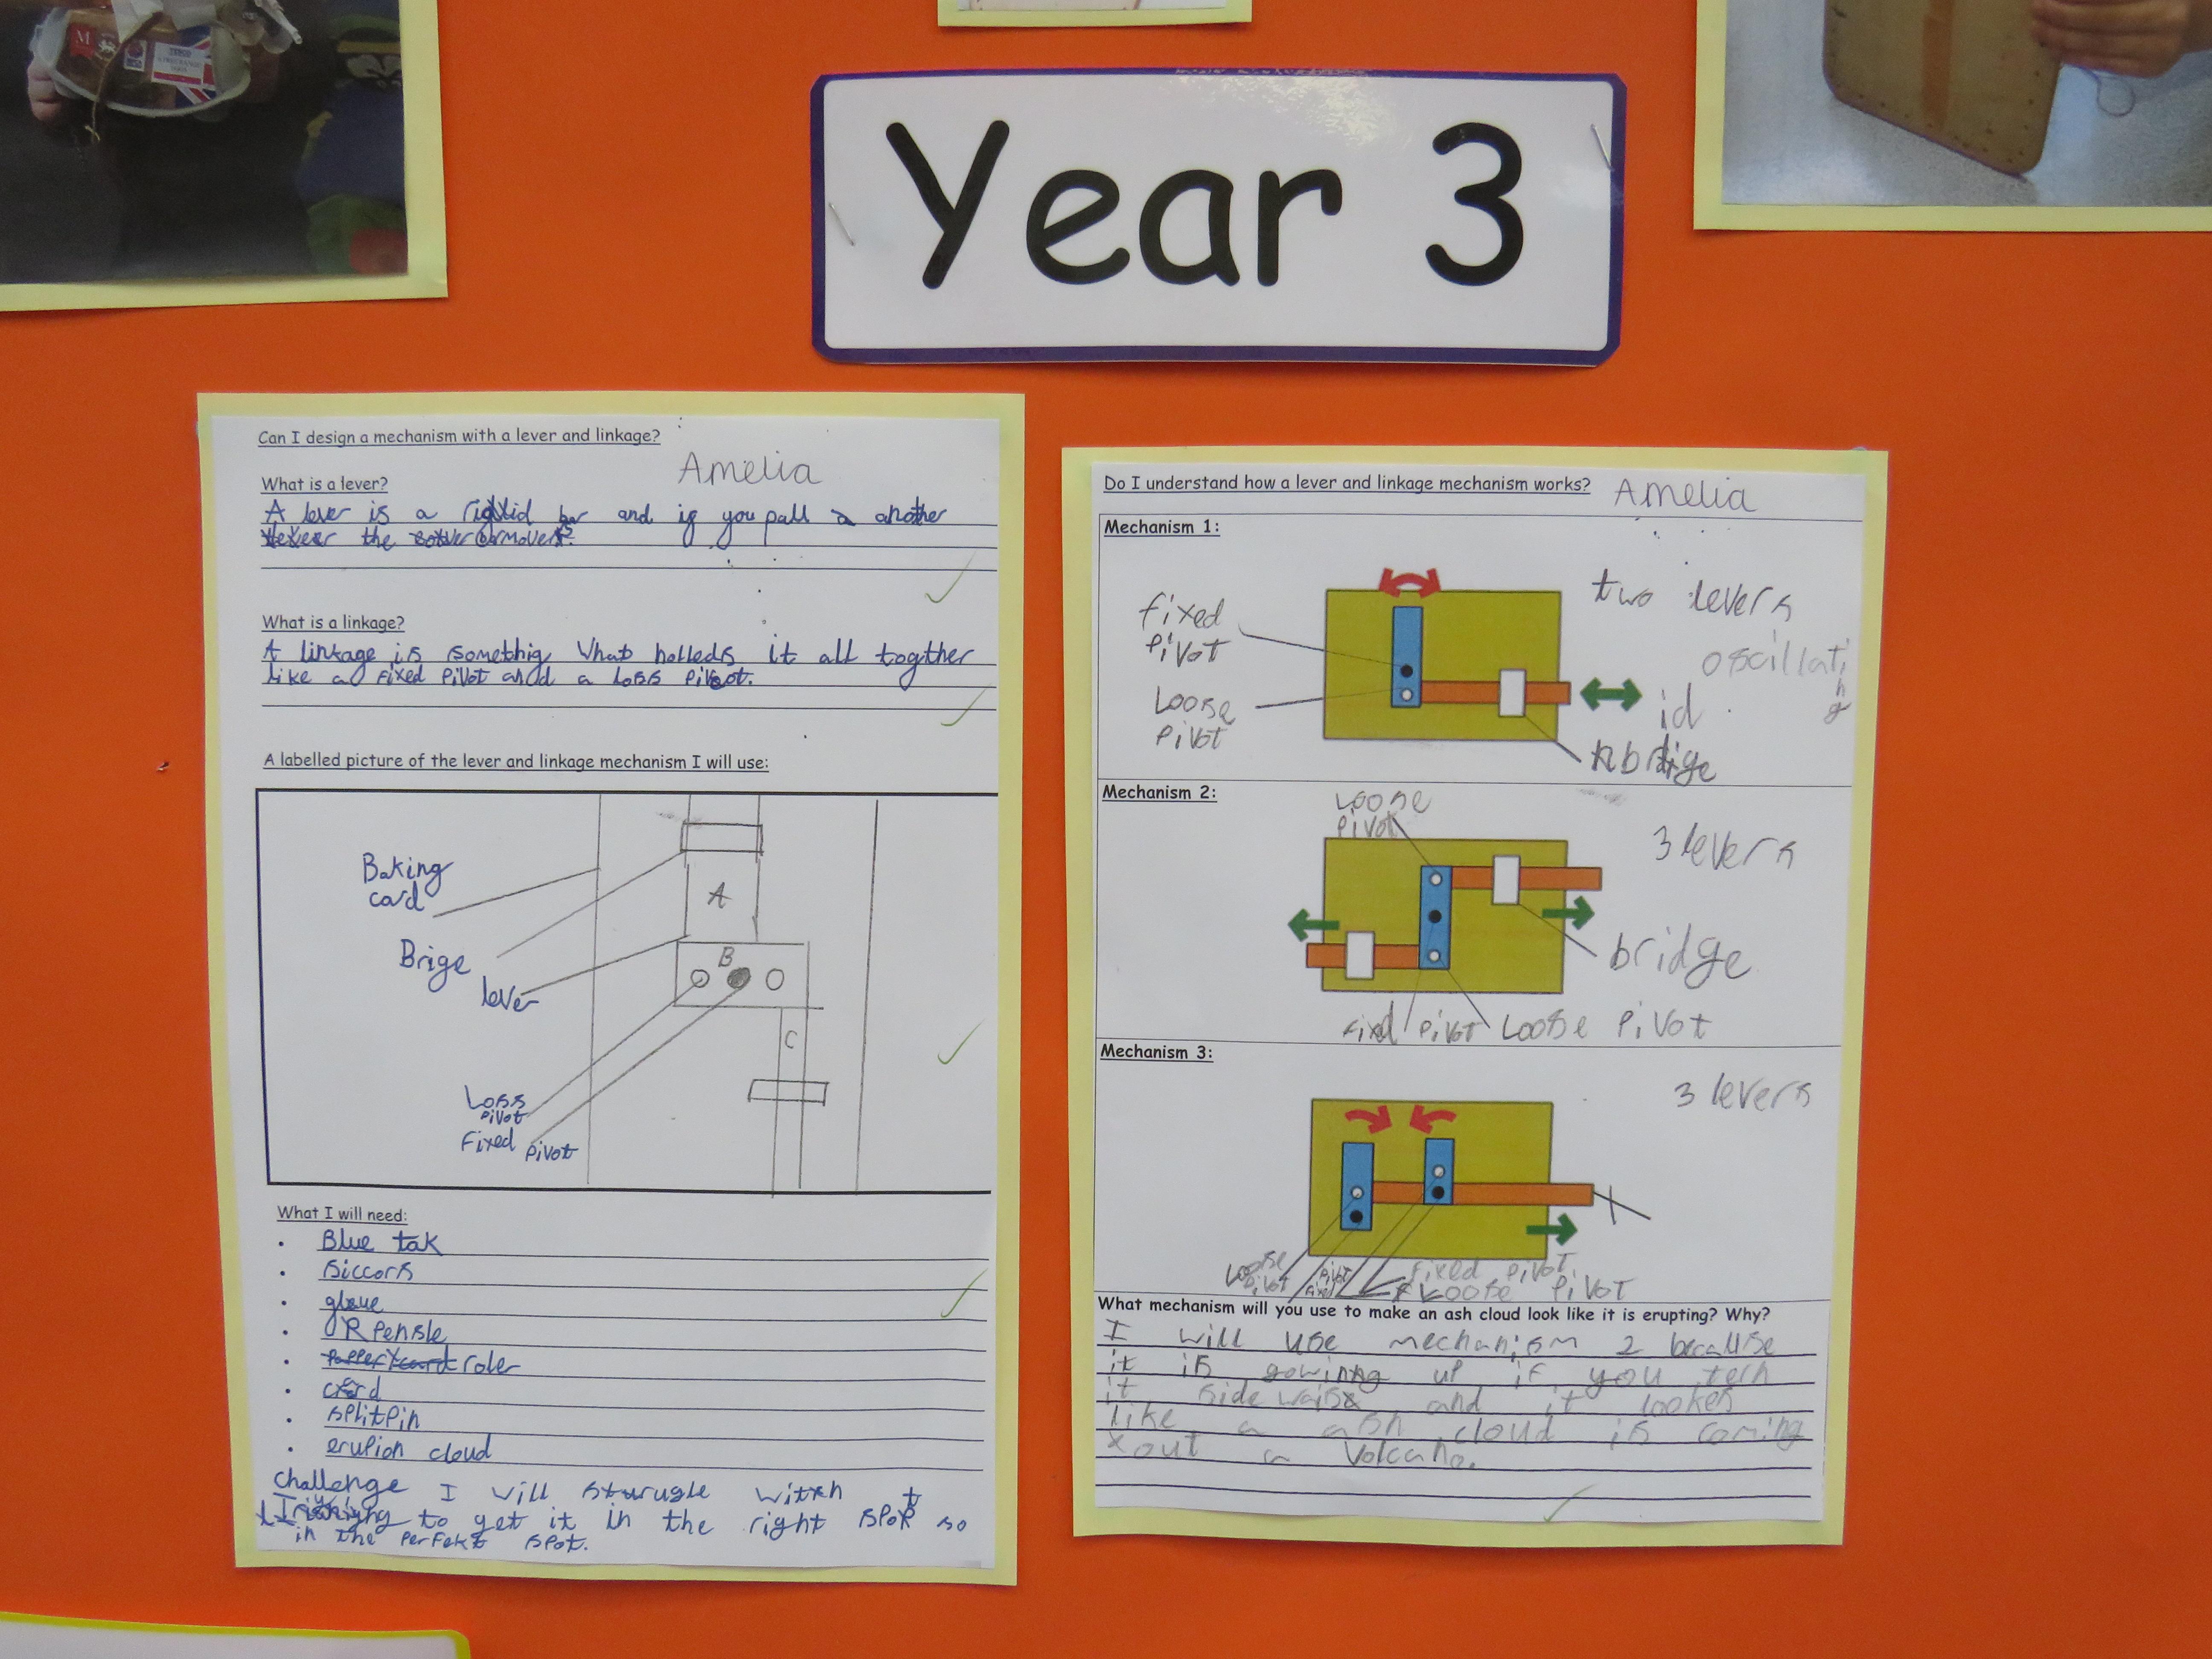 Year 3
Can I design a mechanism with a lever and linkage?
Amelia
What is a lever?
A lever is a bar and if you pull a another
the
What is a linkage?
A linkage is somethig what holleds it all togther
like a fixed pivot and a loss pivot.
A labelled picture of the lever and linkage mechanism I will use:
Baking
card
Brige
lever
A
B
C
Loss
pivot
Fixed pivot
What I will need:
Blue tak
siccors
glue
pensle
roler
card
splitpin
erupion cloud
challenge I will sturugle with
to get it in the right spot so
in the perfekt spot.
Do I understand how a lever and linkage mechanism works?
Amelia
Mechanism 1:
fixed
pivot
Loose
pivot
two levers
oscillating
brige
Mechanism 2:
Loose
pivot
3 levers
bridge
fixed pivot Loose pivot
Mechanism 3:
3 levers
Loose
pivot
pivot
fixed
fixed pivot
Loose pivot
What mechanism will you use to make an ash cloud look like it is erupting? Why?
I will use mechanism 2 because
it is gowing up if you tern
it side wais and it lookes
like a ash cloud is coming
out a volcano.